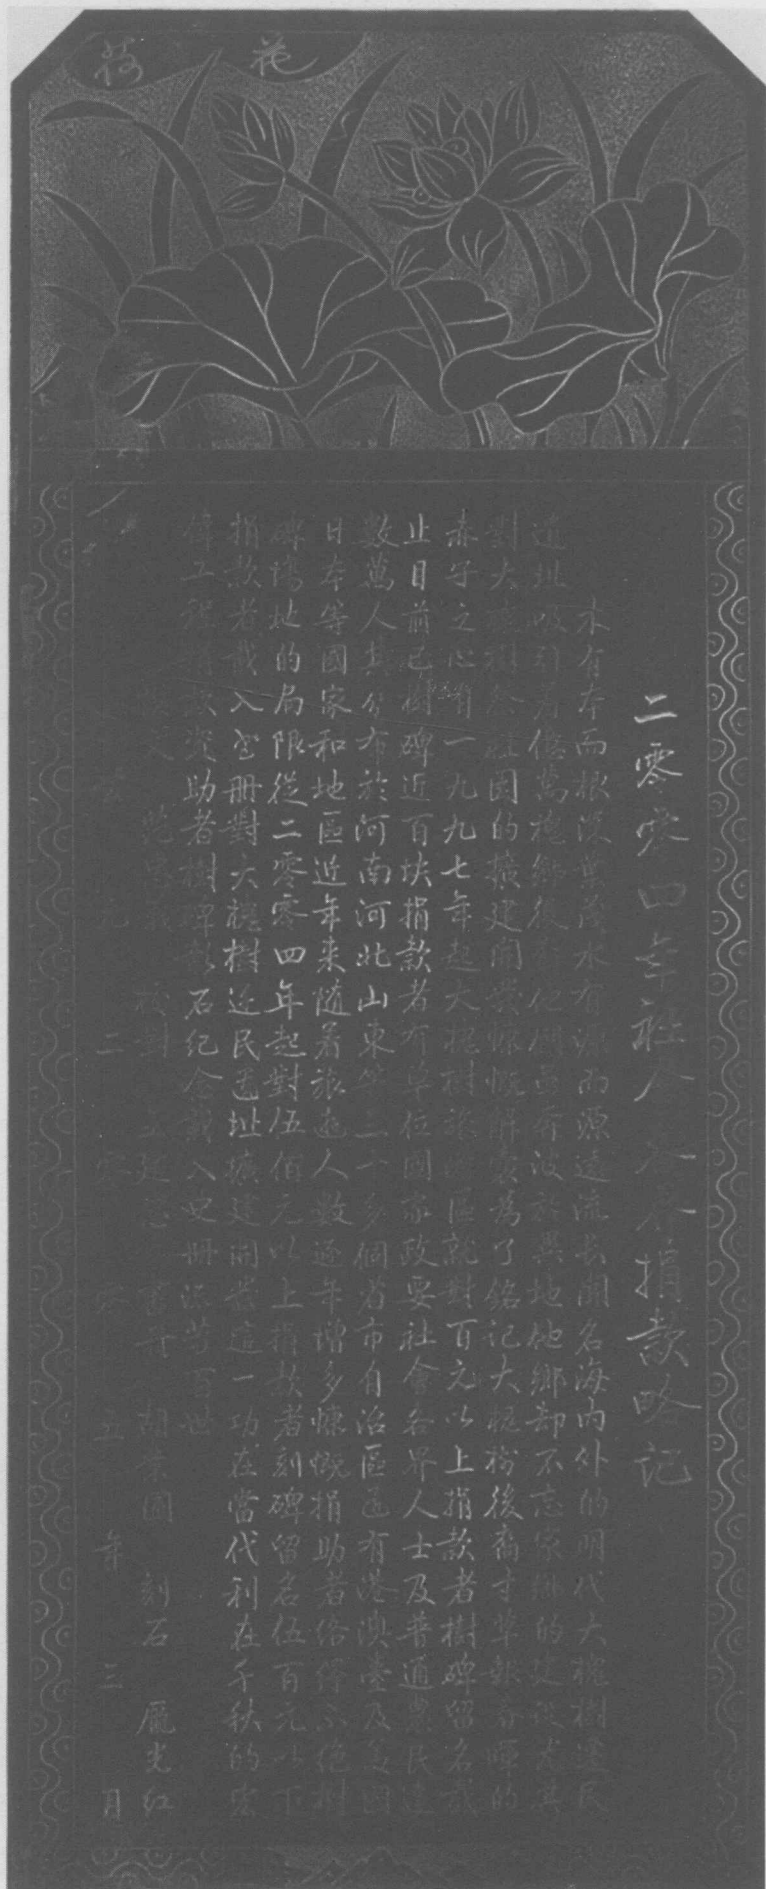 荷花
二零零四年社會各界捐款略记
木有本而根深葉茂水有源而源遠流长聞名海内外的明代大槐樹遷民
遺址吸引着億萬槐鄉後裔他們雖奔波於異地他鄉却不忘家鄉的建设尤其
對大槐樹祭祖園的擴建開發慷慨解囊為了銘记大槐樹後裔寸草報春暉的
赤子之心自一九九七年起大槐樹旅遊區就對百元以上捐款者樹碑留名截
止目前已樹碑近百块捐款者有单位國家政要社會各界人士及普通農民達
數萬人其分布於河南河北山東等二十多個省市自治區還有港澳臺及美國
日本等國家和地區近年来随着旅遊人數逐年增多慷慨捐助者络绎不绝
碑塲地的局限從二零零四年起對伍佰元以上捐款者刻碑留名伍百元以下
捐款者載入史册對大槐樹迁民遺址擴建開發這一功在當代利在千秋的宏
偉工程捐款资助者樹碑刻石纪念載入史册流芳百世
撰文 校對 書丹 刻石 龐光红
公元二零零五年三月